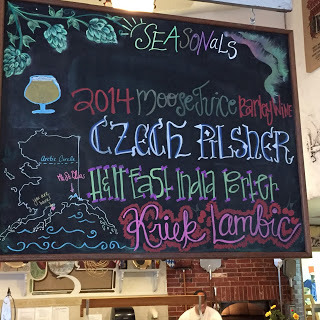 SEASONALS
2014 MOOSE JUICE BARLEY WINE
CZECH PILSNER
East India Porter
Kriek Lambic
Arctic Circle